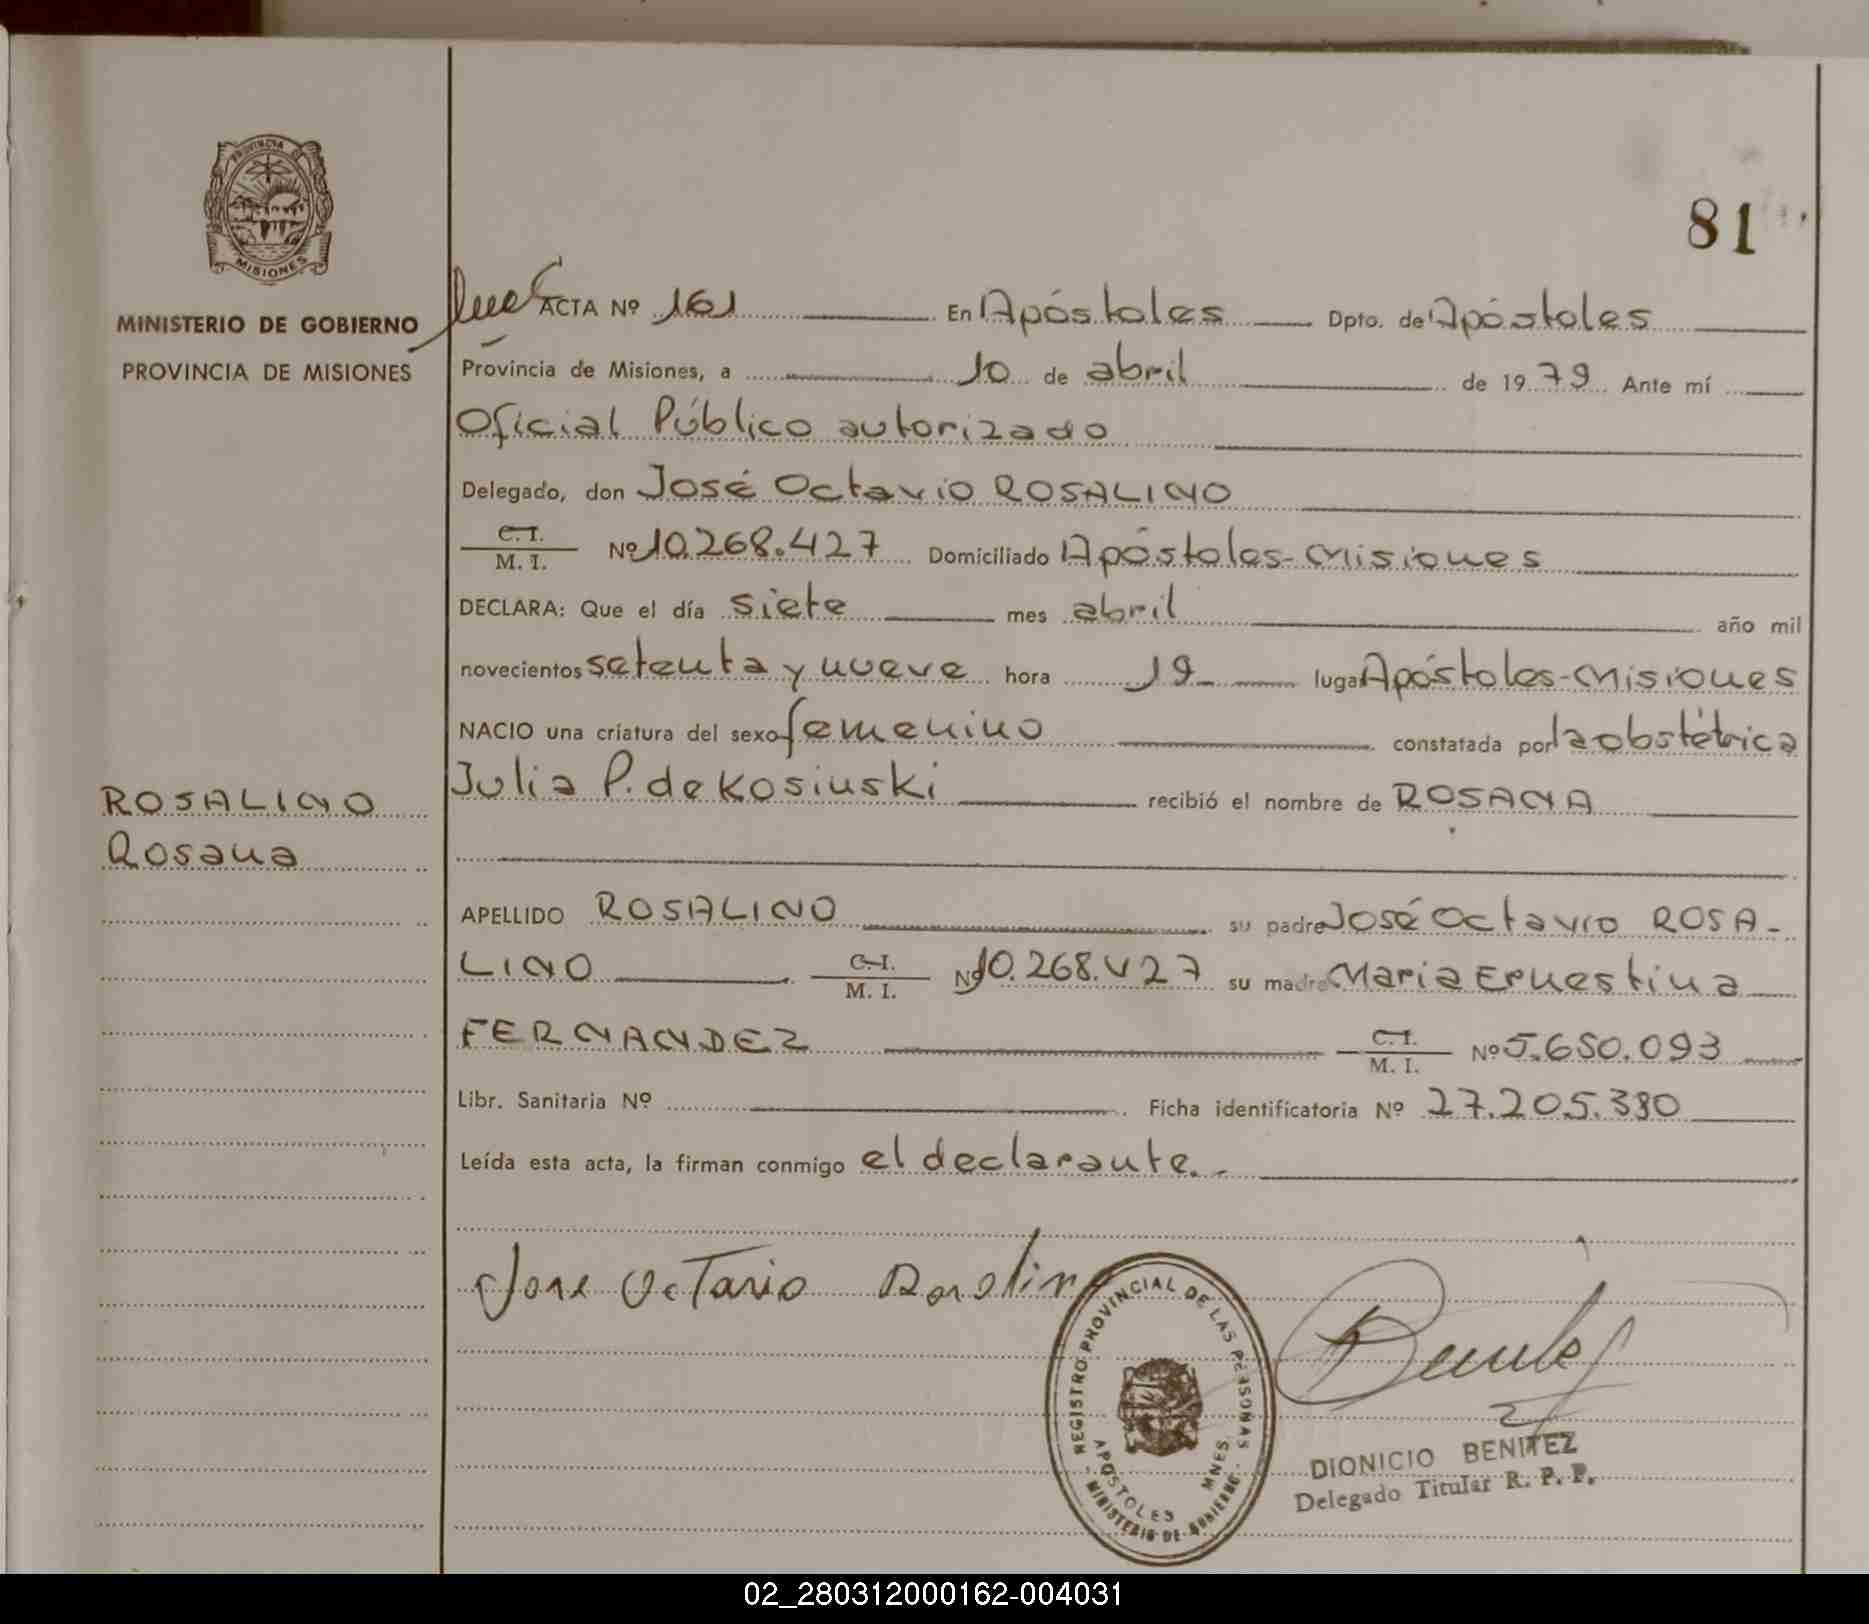 PROVINCIA DE
MISIONES
MINISTERIO DE GOBIERNO
PROVINCIA DE MISIONES
ROSALINO
Rosana
81
ACTA Nº 161 En Apóstoles Dpto. de Apóstoles
Provincia de Misiones, a 10 de abril de 1979 Ante mí
Oficial Público autorizado
Delegado, don José Octavio ROSALINO
C.I.
M. I. Nº 10.268.427 Domiciliado Apóstoles-Misiones
DECLARA: Que el día siete mes abril año mil
novecientos setenta y nueve hora 19 lugar Apóstoles-Misiones
NACIO una criatura del sexo femenino constatada por la obstétrica
Julia P. de Kosinski recibió el nombre de ROSANA
APELLIDO ROSALINO su padre José Octavio ROSA-
LINO C.I. M. I. Nº 10.268.427 su madre Maria Ernestina
FERNANDEZ C.I. M. I. Nº 5.650.093
Libr. Sanitaria Nº Ficha identificatoria Nº 27.205.380
Leída esta acta, la firman conmigo el declarante.-
Jose Octavio Rosalino
REGISTRO PROVINCIAL DE LAS PERSONAS
APOSTOLES MNES.
MINISTERIO DE GOBIERNO
DIONICIO BENITEZ
Delegado Titular R. P. P.
02_280312000162-004031